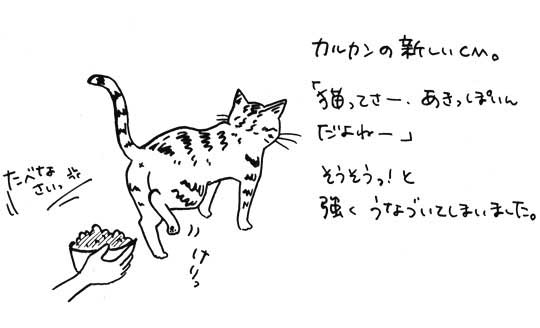 カルカンの新しいCM。
「猫ってさー、あきっぽいん
だよねー」
そうそうっ!と
強くうなづいてしまいました。
たべな
さいっ
けりっ